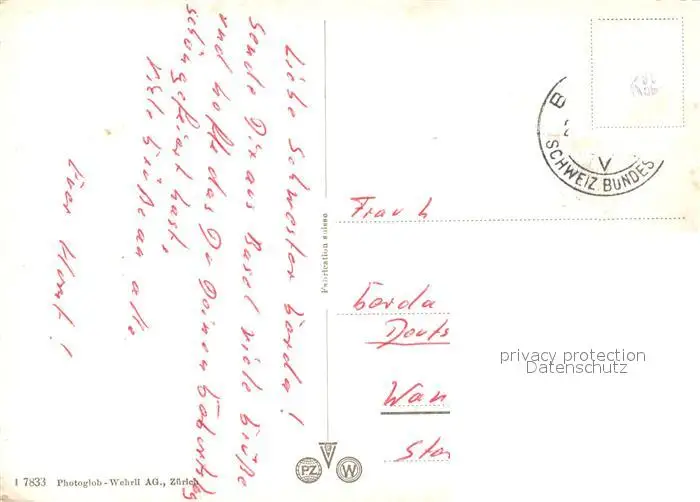 Liebe Schwester Gerda!
Sende Dir aus Basel viele Grüße
und hoffe das Du Deinen Geburtstag
schön gefeiert hast.
Viele Grüße an alle
Euer Horst!
Frau
Gerda
Deuts
Wan
Fabrication suisse
SCHWEIZ. BUNDES
privacy protection
Datenschutz
PZ
W
I 7833 Photoglob-Wehrli AG., Zürich